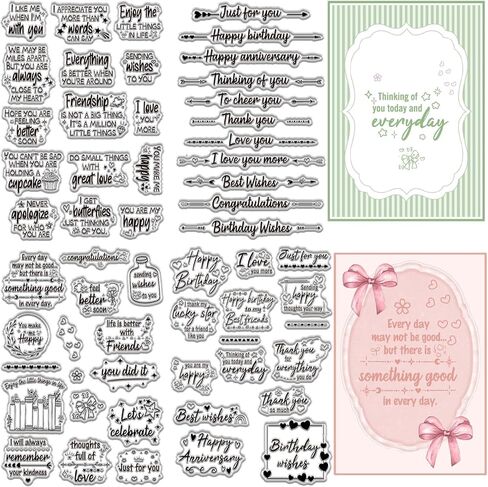 I LIKE ME
WHEN I'M
with you
I APPRECIATE YOU
MORE THAN
words
CAN SAY
Enjoy the
LITTLE THINGS
IN LIFE
WE MAY BE
MILES APART,
BUT YOU ARE
always
CLOSE TO
MY HEART
Everything
IS BETTER WHEN
YOU'RE AROUND
SENDING
wishes
TO YOU
Friendship
IS NOT A BIG THING,
IT'S A MILLION
LITTLE THINGS
I
love
YOU
MORE.
HOPE YOU ARE
FEELING
better
SOON
YOU CAN'T BE SAD
WHEN YOU ARE
HOLDING A
cupcake
DO SMALL THINGS
WITH
great love
YOU MAKE ME
happy
NEVER
apologize
FOR WHO
YOU ARE
I GET
butterflies
JUST THINKING
OF YOU.
YOU ARE MY
happy
Just for you
Happy birthday
Happy anniversary
Thinking of you
To cheer you
Thank you
Love you
I love you more
Best Wishes
Congratulations
Birthday Wishes
Thinking of
you today and
everyday
Every day
may not be good...
but there is
something good
in every day.
congratulations
feel
better
soon
sending
wishes
to you
You make
me
Happy
life is
better with
Friends
you did it
Enjoy the little things in life
Let's
celebrate
I will always
remember
your kindness
thoughts
full of
love
Just for you
Happy
Birthday
I
love
you more
Just for you
Sending
happy
thoughts your way
thank my
lucky star
for a friend
like you
Happy birthday
to my
Best friends
you are my
happy
Thinking of
you today and
everyday
Thank you
for
everything
Thank you
so much
Best wishes
Happy
Anniversary
Birthday
wishes
Every day
may not be good...
but there is
something good
in every day.